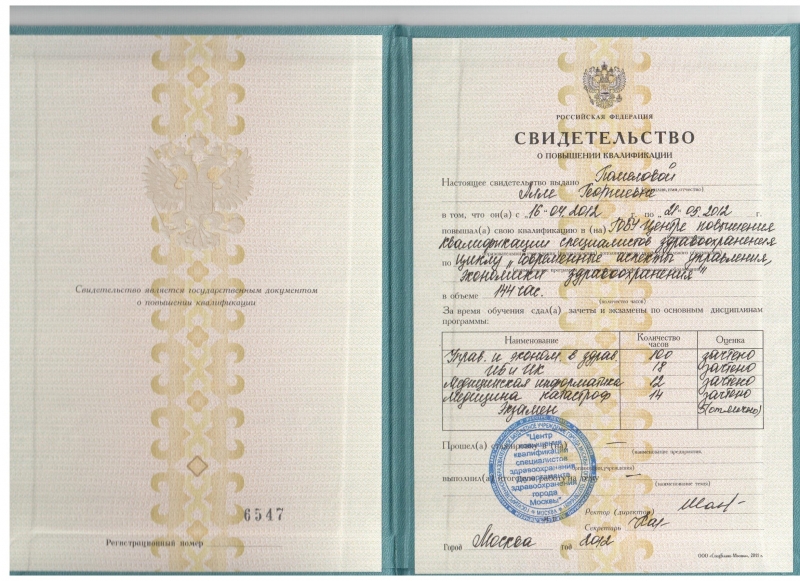 Свидетельство является государственным документом
о повышении квалификации
6547
Регистрационный номер
РОССИЙСКАЯ ФЕДЕРАЦИЯ
СВИДЕТЕЛЬСТВО
О ПОВЫШЕНИИ КВАЛИФИКАЦИИ
Настоящее свидетельство выдано Памеловой
Алле Георгиевне
в том, что он(а) с „16-04.2012 г. по „21-05.2012 г.
повышал(а) свою квалификацию в (на) ГОБУ Центре повышения
квалификации специалистов здравоохранения
по циклу „Современные аспекты управления,
экономики здравоохранения"
в объеме 144 час.
(количество часов)
За время обучения сдал(а) зачеты и экзамены по основным дисциплинам
программы:
Наименование Количество часов Оценка
Управ. и эконом. в здрав. 100 зачтено
ИБ и ИК 18 зачтено
Медицинская информатика 12 зачтено
Медицина катастроф 14 зачтено
Экзамен 5(отлично)
Прошел(а) стажировку в (на) —
(наименование предприятия,
организации, учреждения)
выполнил(а) итоговую работу на тему —
(наименование темы)
"Центр
повышения
квалификации
специалистов
здравоохранения
Департамента
здравоохранения
города
Москвы"
Ректор (директор)
Секретарь
Город Москва год 2012